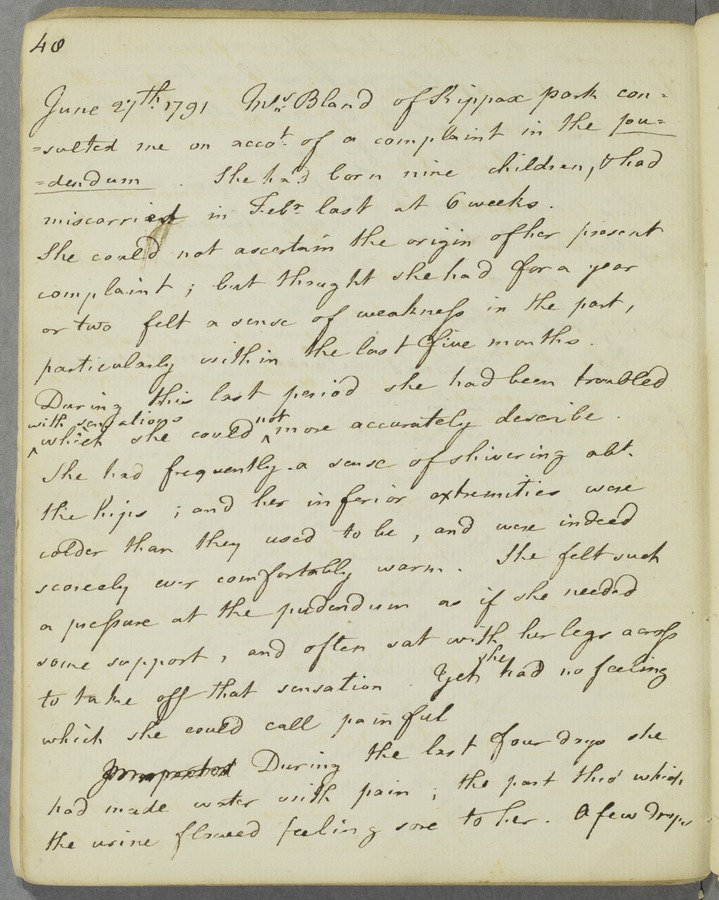 48
June 27th. 1791 Mrs. Bland of Kippax park con-
-sulted me on acco.t of a complaint in the pu-
-dendum. She had born nine children, & had
miscarried in Feb.r last at 6 weeks.
She could not ascertain the origin of her present
complaint; but thought she had for a year
or two felt a sense of weakness in the part,
particularly within the last five months.
During this last period she had been troubled
with sensations
which she could not more accurately describe.
She had frequently a sense of shivering abt.
the hips; and her inferior extremities were
colder than they used to be, and were indeed
scarcely ever comfortably warm. She felt such
a pressure at the pudendum as if she needed
some support, and often sat with her legs across
to take off that sensation. Yet she had no feeling
which she could call painful
During the last four days she
had made water with pain; the part thro' which
the urine flowed feeling sore to her. A few drops